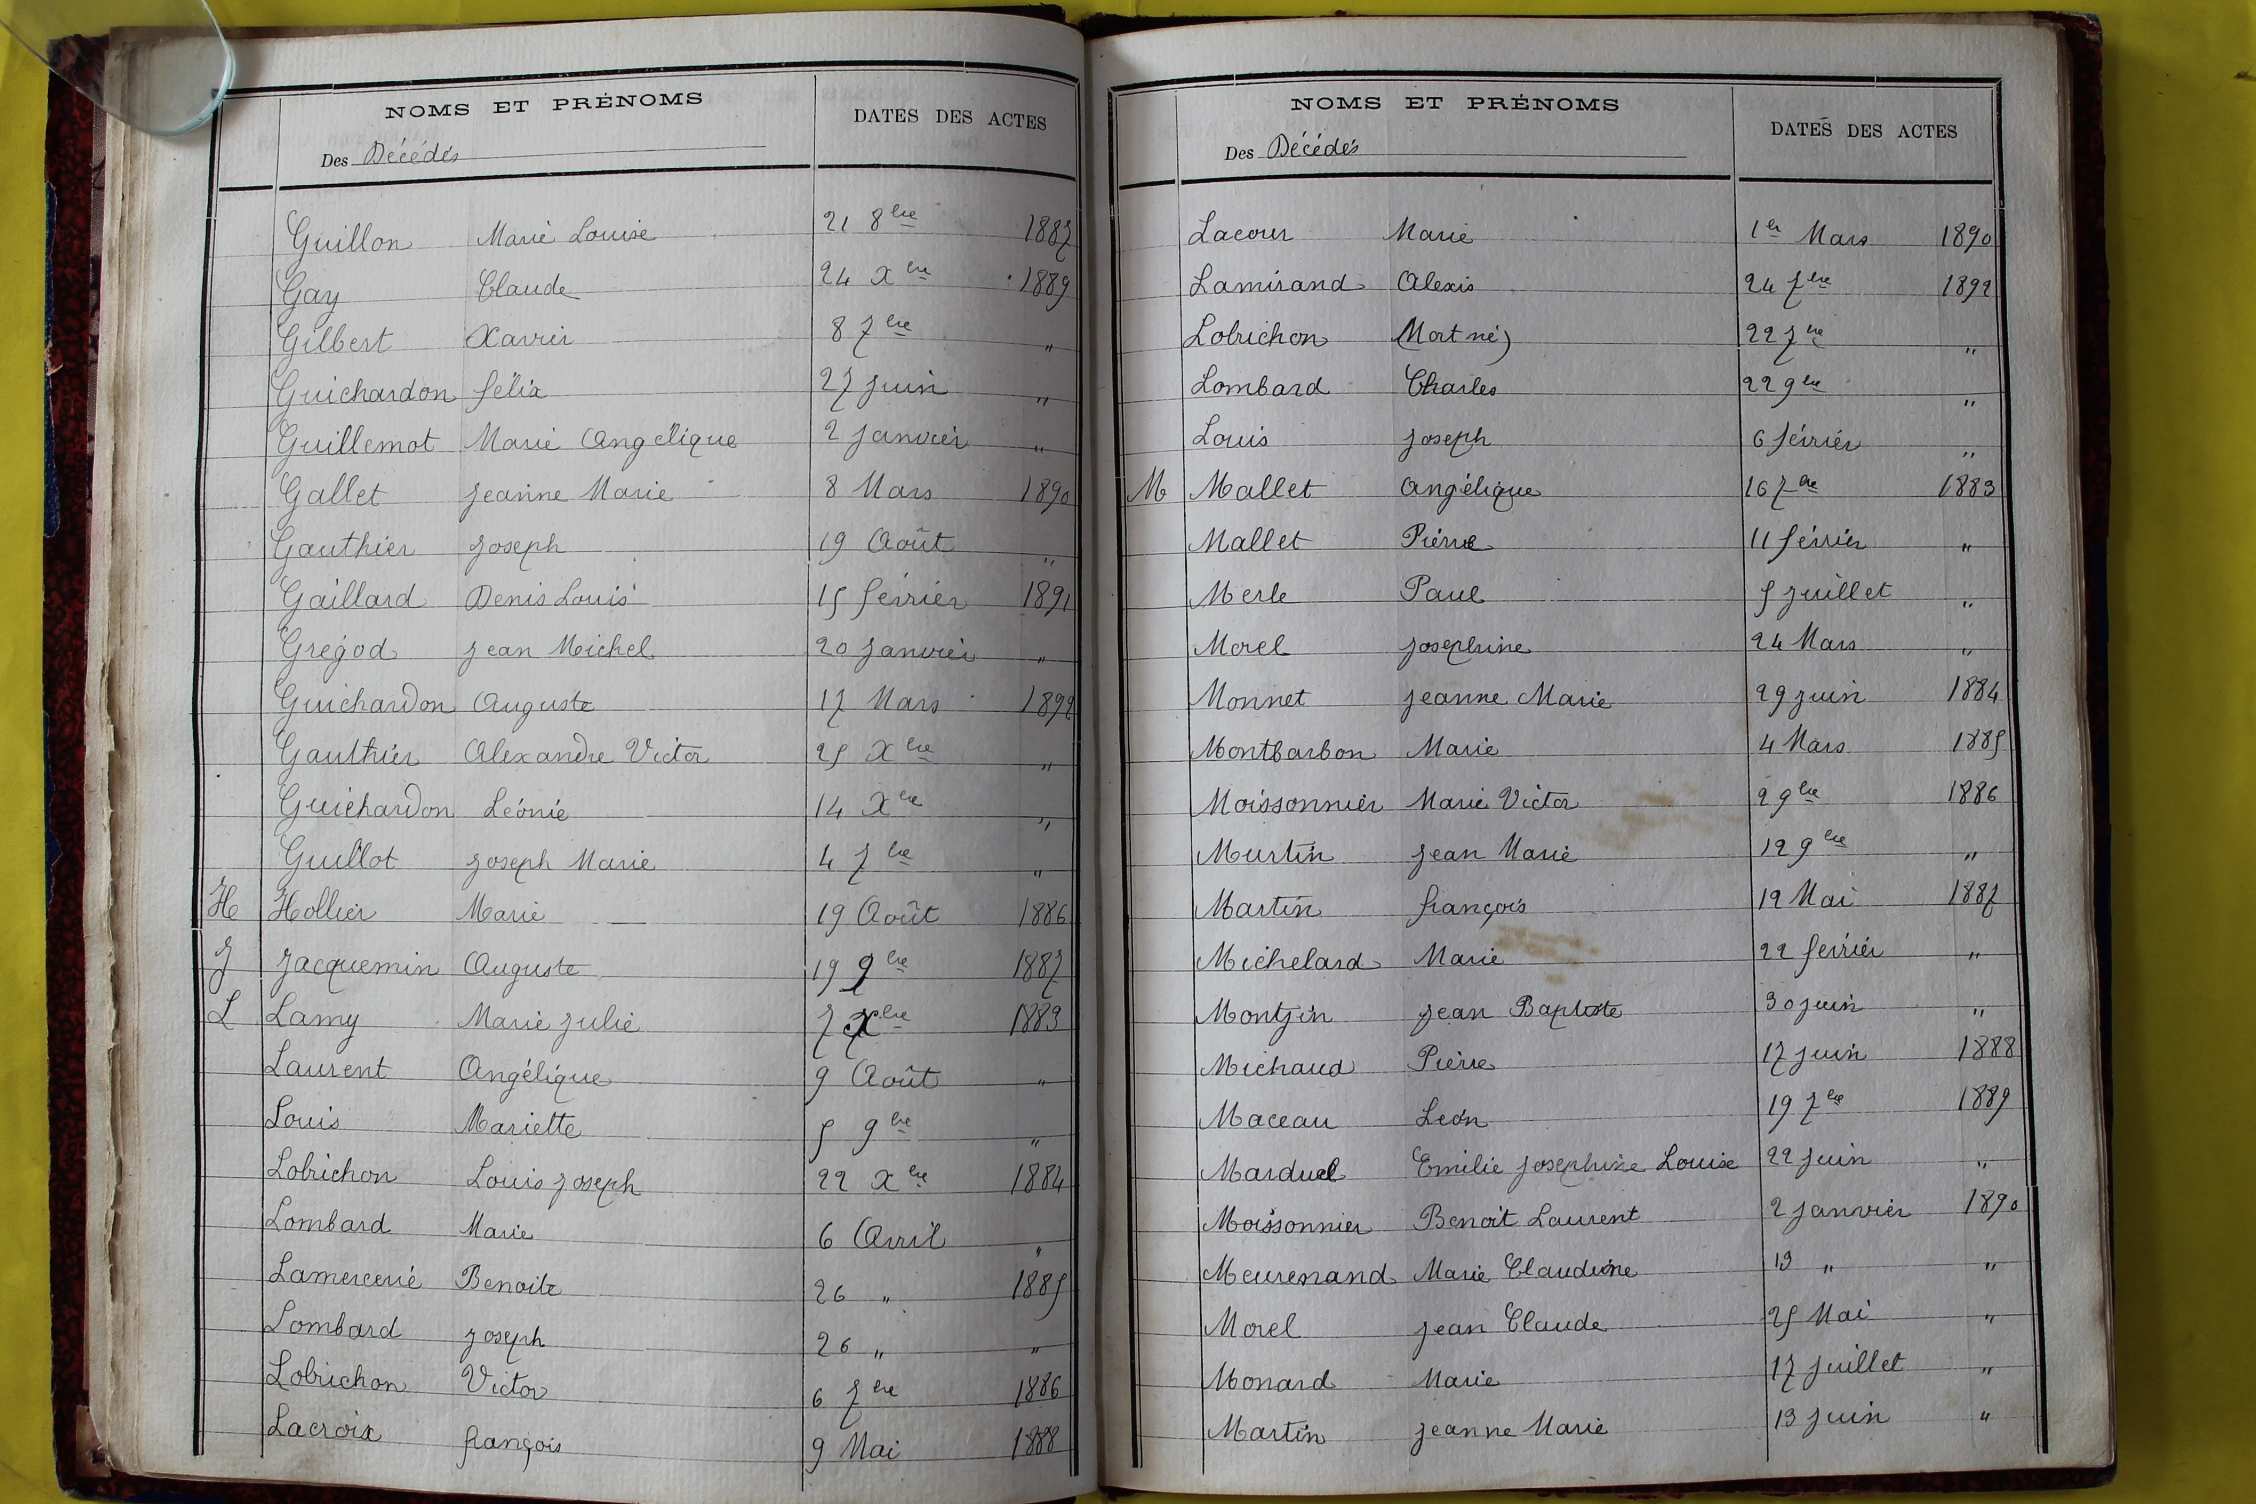 NOMS ET PRÉNOMS DATES DES ACTES
Des Décédés
Guillon Marie Louise 21 8bre 1887
Gay Claude 24 Xbre 1889
Gilbert Xavier 8 7bre "
Guichardon félix 27 juin "
Guillemot Marie Angélique 2 janvier "
Gallet jeanne Marie 8 Mars 1890
Gauthier joseph 19 Août "
Gaillard Denis Louis 15 février 1891
Grégod jean Michel 20 janvier "
Guichardon Auguste 17 Mars 1892
Gauthier Alexandre Victor 25 Xbre "
Guichardon Léonie 14 Xbre "
Guillot joseph Marie 4 7bre "
H Hollier Marie 19 Août 1886
J Jacquemin Auguste 19 9bre 1887
L Lamy Marie julie 7 Xbre 1883
Laurent Angélique 9 Août "
Louis Mariette 5 9bre "
Lobrichon Louis joseph 22 Xbre 1884
Lombard Marie 6 Avril "
Lamercerie Benoite 26 " 1885
Lombard joseph 26 " "
Lobrichon Victor 6 7bre 1886
Lacroix françois 9 Mai 1888
NOMS ET PRÉNOMS DATES DES ACTES
Des Décédés
Lacour Marie 1er Mars 1890
Lamirand Alexis 24 7bre 1892
Lobrichon (Mort né) 22 7bre "
Lombard Charles 22 9bre "
Louis joseph 6 février "
M Mallet Angélique 16 7bre 1883
Mallet Pierre 11 février "
Merle Paul 5 juillet "
Morel josephine 24 Mars "
Monnet jeanne Marie 29 juin 1884
Montbarbon Marie 4 Mars 1885
Moissonnier Marie Victor 2 9bre 1886
Murtin jean Marie 12 9bre "
Martin françois 12 Mai 1887
Michelard Marie 22 février "
Montjin jean Baptiste 30 juin "
Michaud Pierre 17 juin 1888
Maceau Léon 19 7bre 1889
Marduel Emilie josephine Louise 22 juin "
Moissonnier Benoit Laurent 2 janvier 1890
Meurenand Marie Claudine 13 " "
Morel jean Claude 25 Mai "
Monard Marie 17 juillet "
Martin jeanne Marie 13 juin "